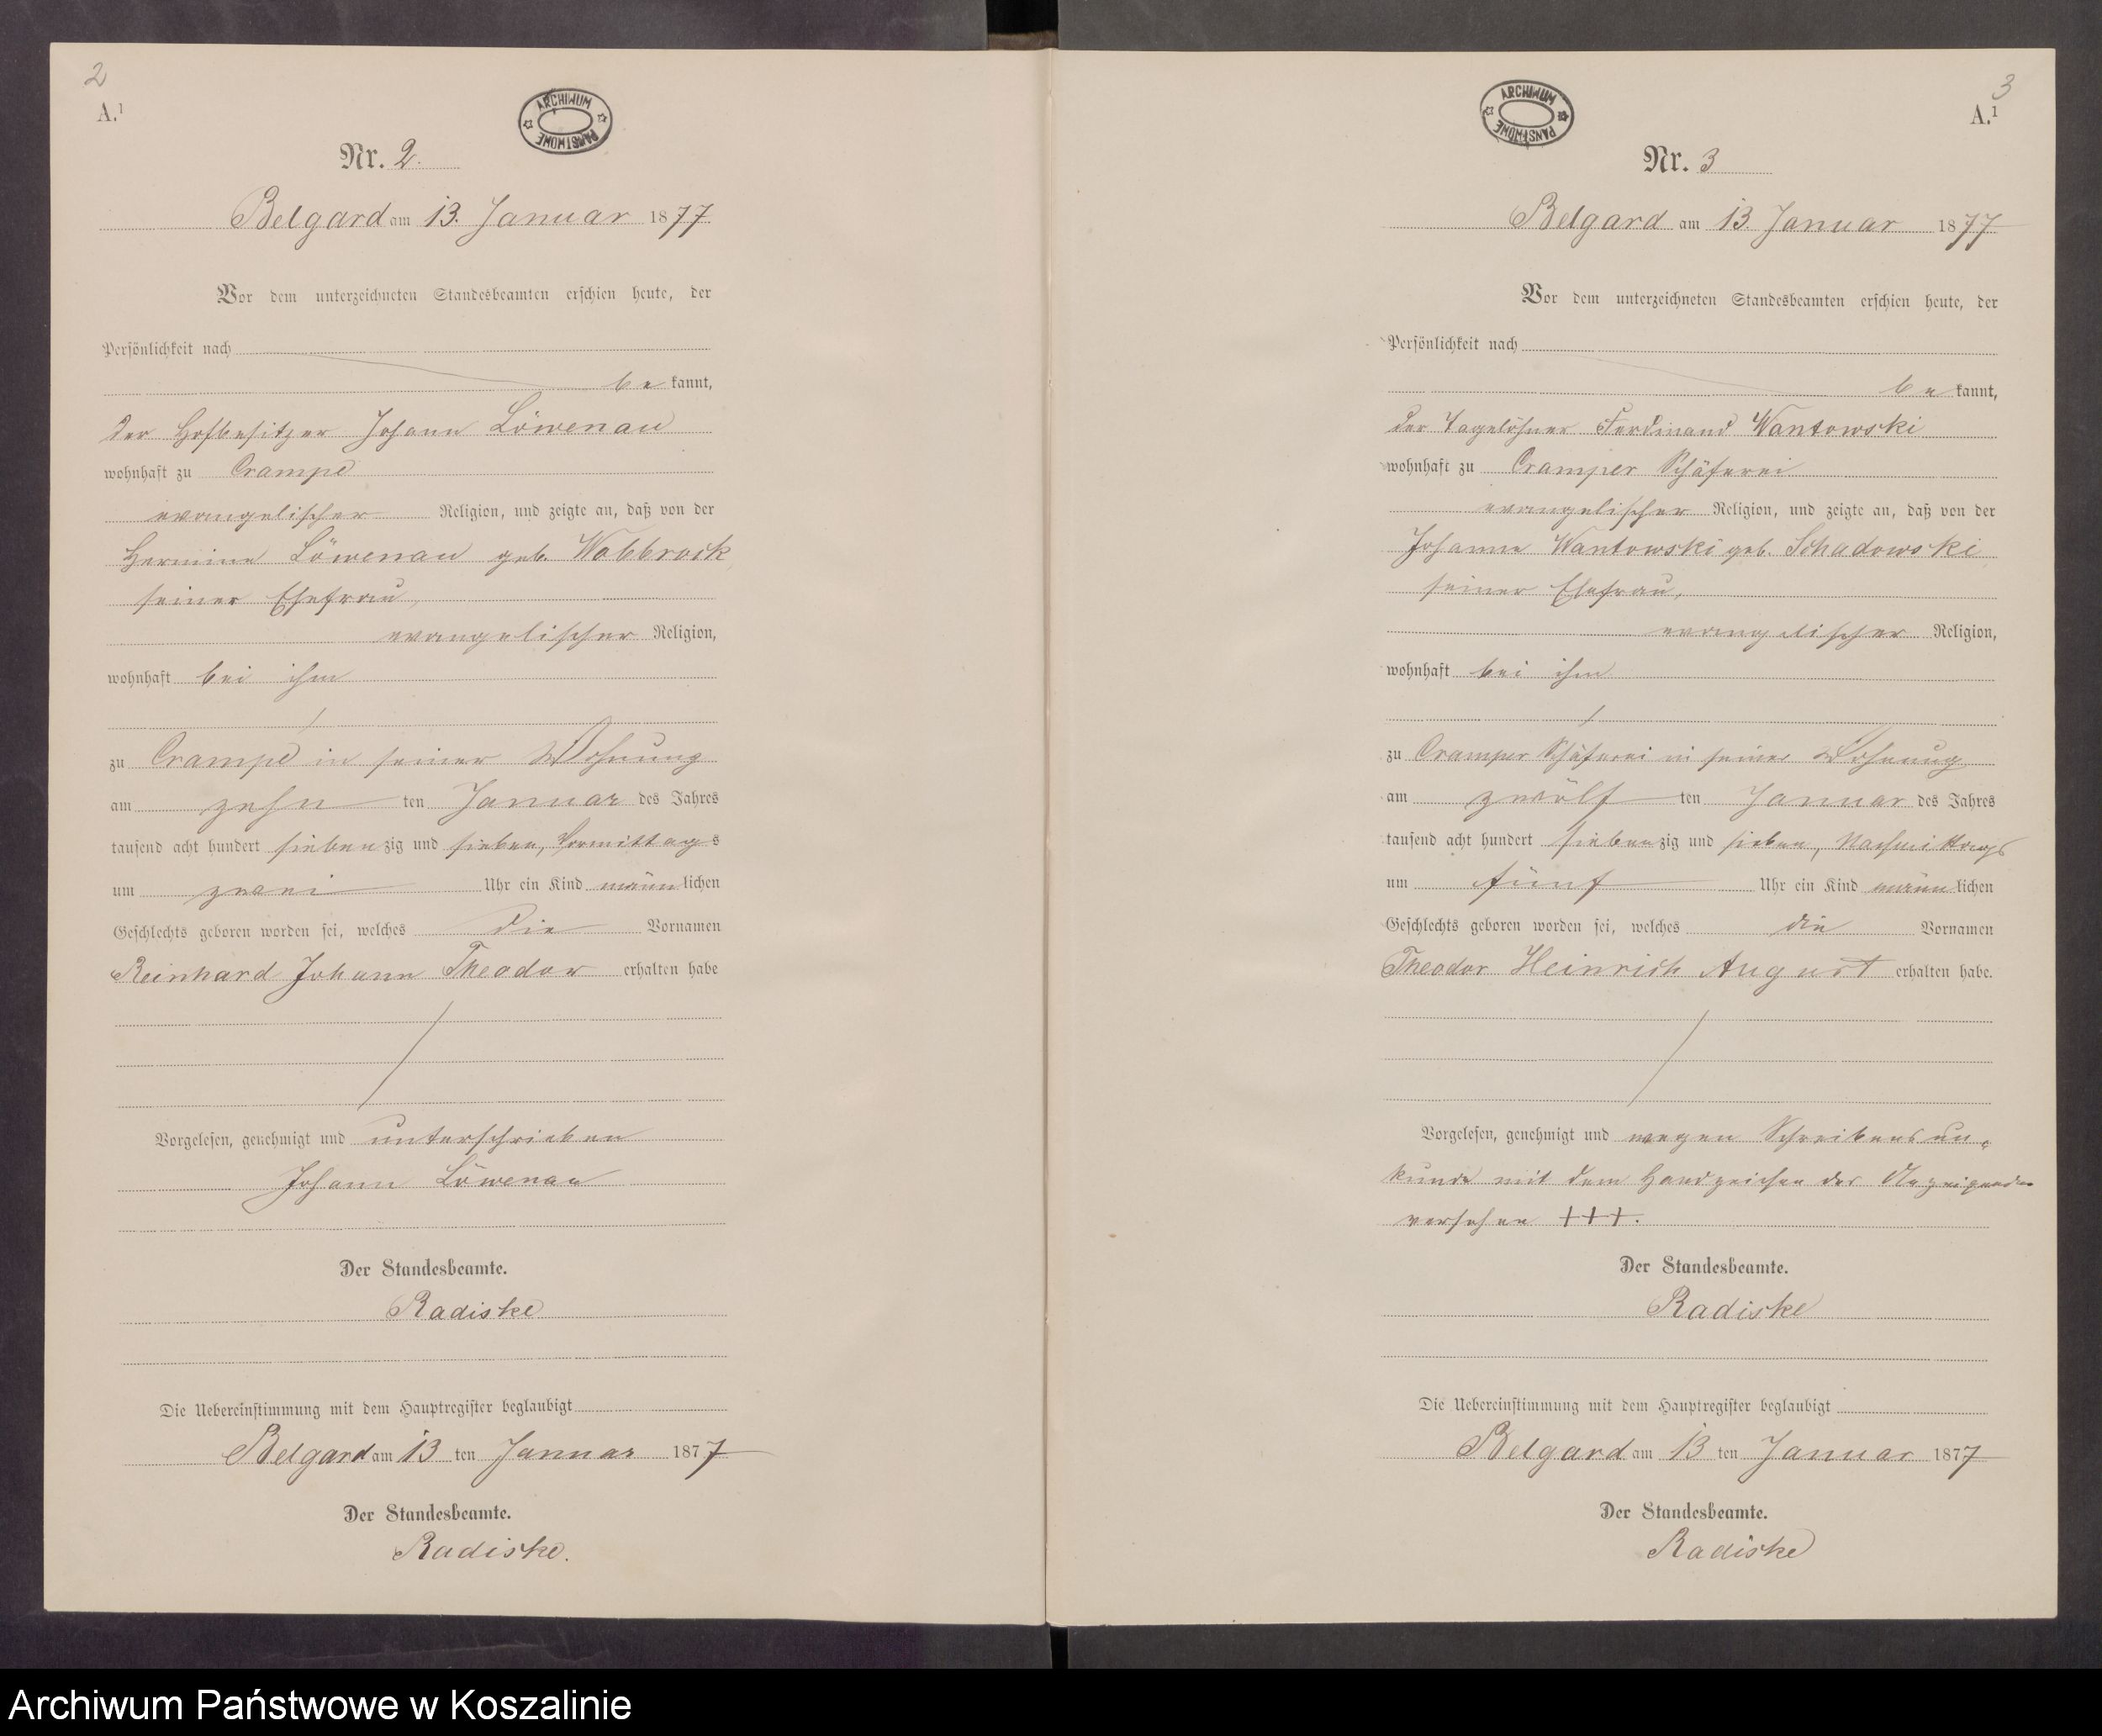 2
A.¹
ARCHIWUM PAŃSTWOWE
Nr. 2.
Belgard am 13. Januar 1877
Vor dem unterzeichneten Standesbeamten erschien heute, der
Persönlichkeit nach
be kannt,
der Hofbesitzer Johann Löwenau
wohnhaft zu Crampe
evangelischer Religion, und zeigte an, daß von der
Hermine Löwenau geb. Wobbrock,
seiner Ehefrau,
evangelischer Religion,
wohnhaft bei ihm
zu Crampe in seiner Wohnung
am zehn ten Januar des Jahres
tausend acht hundert siebenzig und sieben, Vormittags
um zwei Uhr ein Kind männlichen
Geschlechts geboren worden sei, welches die Vornamen
Reinhard Johann Theodor erhalten habe
Vorgelesen, genehmigt und unterschrieben
Johann Löwenau
Der Standesbeamte.
Radiske
Die Uebereinstimmung mit dem Hauptregister beglaubigt
Belgard am 13 ten Januar 1877
Der Standesbeamte.
Radiske.
3
A.¹
ARCHIWUM PAŃSTWOWE
Nr. 3
Belgard am 13. Januar 1877
Vor dem unterzeichneten Standesbeamten erschien heute, der
Persönlichkeit nach
be kannt,
der Tagelöhner Ferdinand Wantowski
wohnhaft zu Cramper Schäferei
evangelischer Religion, und zeigte an, daß von der
Johanne Wantowski geb. Schadowski,
seiner Ehefrau,
evangelischer Religion,
wohnhaft bei ihm
zu Cramper Schäferei in seiner Wohnung
am zwölf ten Januar des Jahres
tausend acht hundert siebenzig und sieben, Nachmittags
um fünf Uhr ein Kind männlichen
Geschlechts geboren worden sei, welches die Vornamen
Theodor Heinrich August erhalten habe.
Vorgelesen, genehmigt und wegen Schreibensun-
kunde mit dem Handzeichen des Anzeigenden
versehen +++.
Der Standesbeamte.
Radiske
Die Uebereinstimmung mit dem Hauptregister beglaubigt
Belgard am 13 ten Januar 1877
Der Standesbeamte.
Radiske
Archiwum Państwowe w Koszalinie